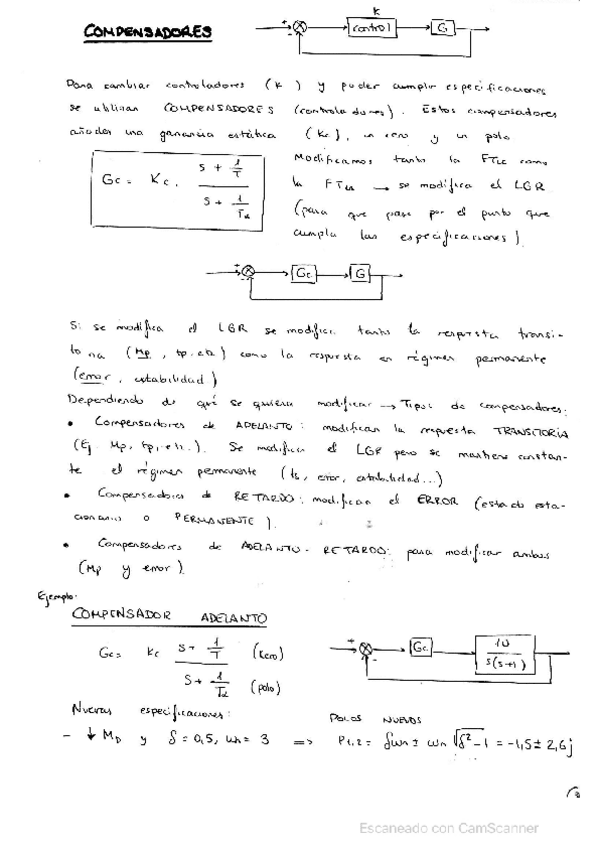 COMPENSADORES
K
+
-
control
G
Para cambiar controladores (K ) y poder cumplir especificaciones
se utilizan COMPENSADORES (controladores). Estos compensadores
añaden una ganancia estática (Kc), un cero y un polo
Gc = Kc . (s + 1/T) / (s + 1/Tα)
Modificamos tanto la FTLC como
la FTLA → se modifica el LGR
(para que pase por el punto que
cumpla las especificaciones)
+
-
Gc
G
Si se modifica el LGR se modifica tanto la respuesta transi-
toria (Mp, tp, etc) como la respuesta en régimen permanente
(error, estabilidad)
Dependiendo de qué se quiera modificar → Tipos de compensadores:
• Compensadores de ADELANTO: modifican la respuesta TRANSITORIA
(Ej. Mp, tp, etc.). Se modifica el LGR pero se mantiene constan-
te el régimen permanente (ts, error, estabilidad...)
• Compensadores de RETARDO: modifican el ERROR (estado esta-
cionario o PERMANENTE).
• Compensadores de ADELANTO - RETARDO: para modificar ambos
(Mp y error).
Ejemplo:
COMPENSADOR ADELANTO
Gc = Kc (s + 1/T) / (s + 1/Tα)
(cero)
(polo)
+
-
Gc
10 / s(s+1)
Nuevas especificaciones:
POLOS NUEVOS
- ↓ Mp y δ = 0,5, ωn = 3 ⇒ P1,2 = δωn ± ωn √(δ² - 1) = -1,5 ± 2,6j
Escaneado con CamScanner